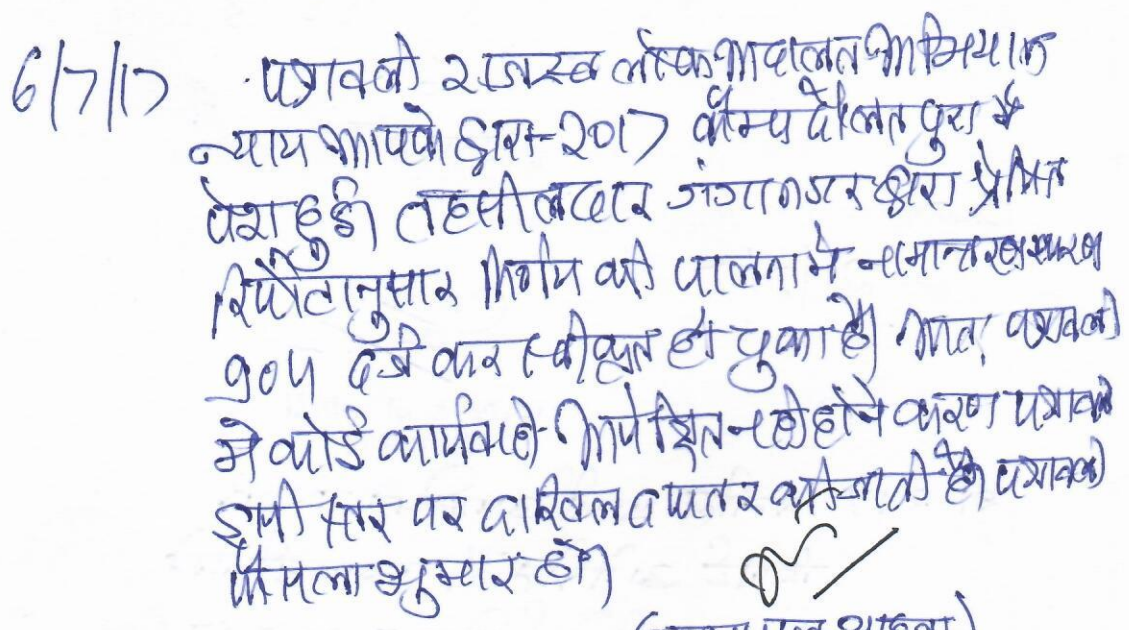 6/7/17 पत्रावली राजस्व लोक अदालत अभियान
न्याय आपके द्वार-2017 कैम्प दौलतपुरा में
पेश हुई। तहसीलदार गंगानगर द्वारा प्रेषित
रिपोर्टानुसार निर्णय की पालना में नामान्तरकरण
904 दर्ज कर स्वीकृत हो चुका है। अतः पत्रावली
में कोई कार्यवाही अपेक्षित नही होने कारण पत्रावली
इसी स्तर पर दाखिल दफ्तर की जाती है। पत्रावली
फैसला शुमार हो।